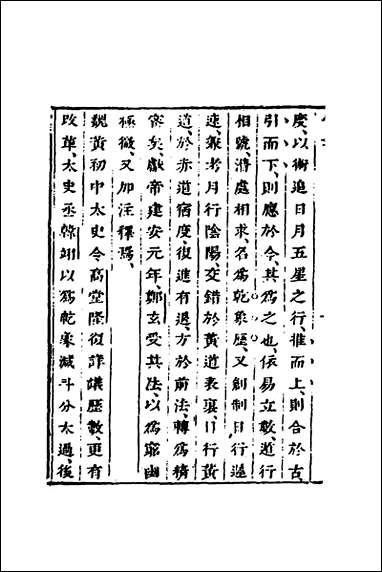 度、以術追日月五星之行、推而上、則合於古、
引而下、則應於今、其爲之也、依易立數、遁行
相號、潛處相求、名爲乾象歷、又創制日行遲
速、兼考月行陰陽、交錯於黃道表裏、日行黃
道、於赤道宿度、復進有退、方於前法、轉爲精
密矣、獻帝建安元年、鄭玄受其法、以爲窮幽
極微、又加注釋焉、
魏黃初中太史令高堂隆復詳議歷數、更有
改革、太史丞韓翊以爲乾象減斗分太過、後